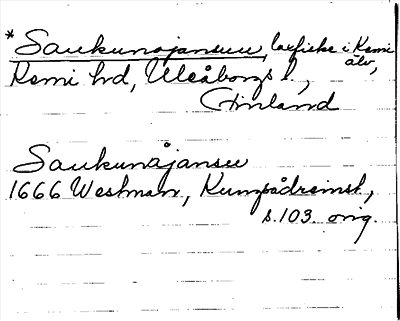 *Saukunojansuu, laxfiske i Kemi
älv,
Kemi hd, Uleåborgs l.,
Finland
Saukunåjansuu
1666 Westman, Kungsådreinsk,
s. 103 orig.